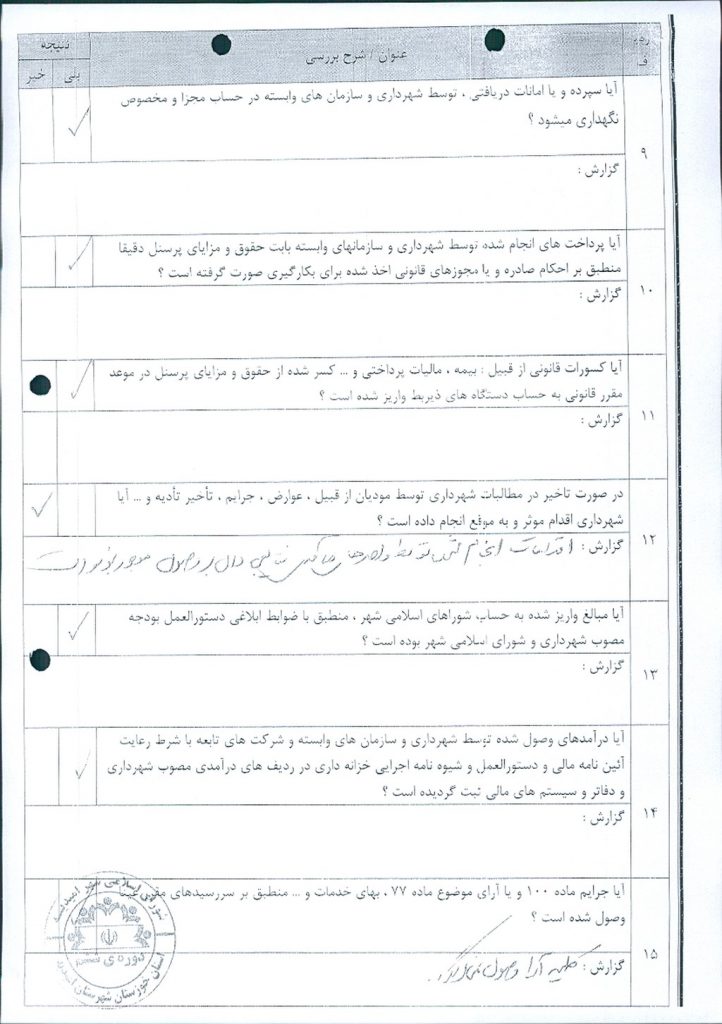 ردیف
عنوان / شرح بررسی
نتیجه
بلی
خیر
۹
آیا سپرده و یا امانات دریافتی ، توسط شهرداری و سازمان های وابسته در حساب مجزا و مخصوص
نگهداری میشود ؟
گزارش :
۱۰
آیا پرداخت های انجام شده توسط شهرداری و سازمانهای وابسته بابت حقوق و مزایای پرسنل دقیقا
منطبق بر احکام صادره و یا مجوزهای قانونی اخذ شده برای بکارگیری صورت گرفته است ؟
گزارش :
۱۱
آیا کسورات قانونی از قبیل : بیمه ، مالیات پرداختی و ... کسر شده از حقوق و مزایای پرسنل در موعد
مقرر قانونی به حساب دستگاه های ذیربط واریز شده است ؟
گزارش :
۱۲
در صورت تاخیر در مطالبات شهرداری توسط مودیان از قبیل ، عوارض ، جرایم ، تأخیر تأدیه و ... آیا
شهرداری اقدام موثر و به موقع انجام داده است ؟
گزارش : اقدامات انجام
۱۳
آیا مبالغ واریز شده به حساب شوراهای اسلامی شهر ، منطبق با ضوابط ابلاغی دستورالعمل بودجه
مصوب شهرداری و شورای اسلامی شهر بوده است ؟
گزارش :
۱۴
آیا درآمدهای وصول شده توسط شهرداری و سازمان های وابسته و شرکت های تابعه با شرط رعایت
آئین نامه مالی و دستورالعمل و شیوه نامه اجرایی خزانه داری در ردیف های درآمدی مصوب شهرداری
و دفاتر و سیستم های مالی ثبت گردیده است ؟
گزارش :
۱۵
آیا جرایم ماده ۱۰۰ و یا آرای موضوع ماده ۷۷ ، بهای خدمات و ... منطبق بر سررسیدهای
وصول شده است ؟
گزارش : کلیه آرا وصول
شورای اسلامی شهر
دوره ی
استان خوزستان شهرستان